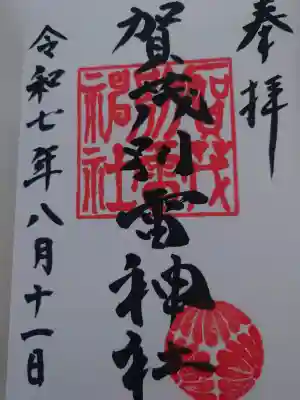 奉拝
賀茂別雷神社
令和七年八月十一日
賀茂